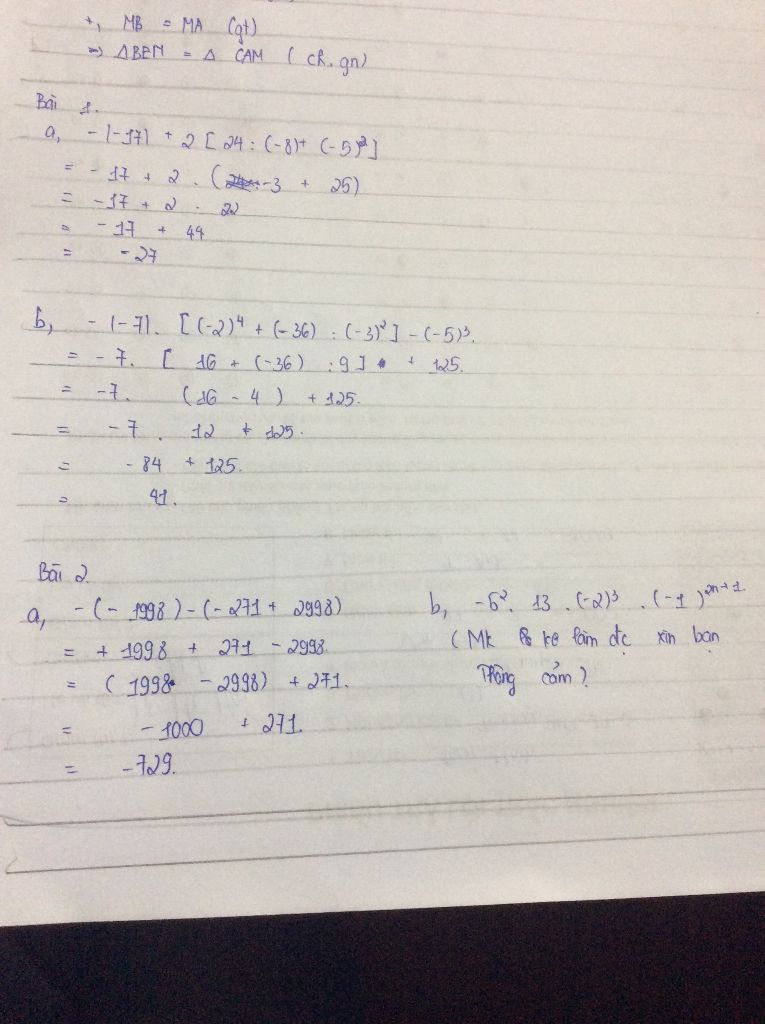 +, MB = MA (gt)
=> ΔBEM = Δ CAM ( ch. gn)
Bài 1.
a, - |-17| + 2 [ 24 : (-8) + (-5)²]
= - 17 + 2 . ( -3 + 25)
= -17 + 2 . 22
= - 17 + 44
= - 27
b, - |-7|. [(-2)⁴ + (-36) : (-3)²] - (-5)³.
= - 7. [ 16 + (-36) : 9 ] + 125.
= -7. (16 - 4 ) + 125.
= - 7 . 12 + 125.
= - 84 + 125.
= 41.
Bài 2.
a, - (- 1998) - (- 271 + 2998)
= + 1998 + 271 - 2998.
= ( 1998 - 2998) + 271.
= - 1000 + 271.
= -729.
b, -5². 13 . (-2)³ . (-1)²ⁿ⁺¹.
(Mk ko làm đc xin bạn
Thông cảm)